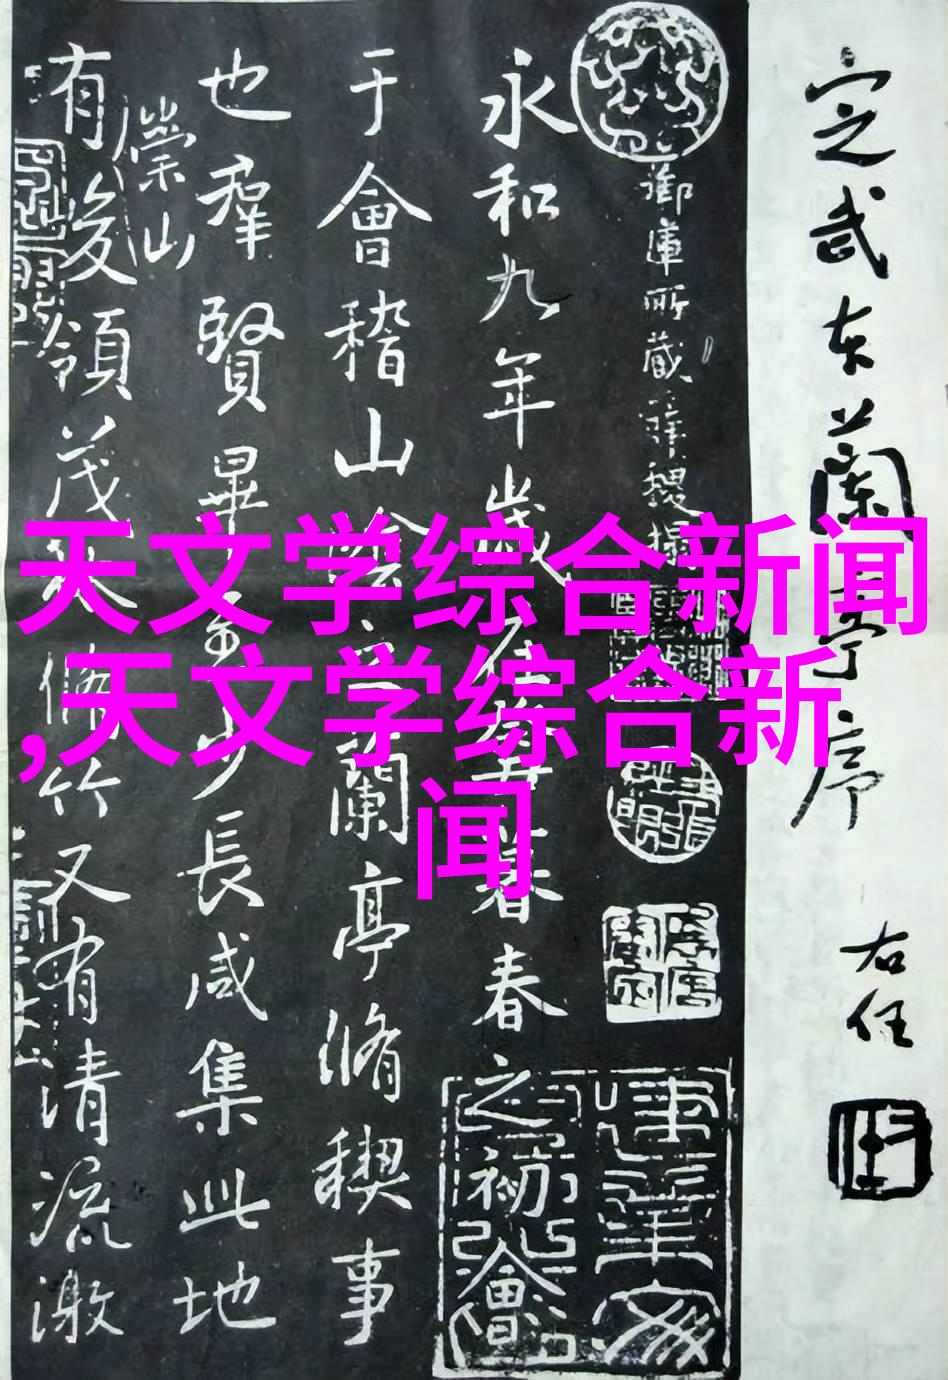 天文学综合新闻
,天文学综合新
闻
定武本蘭亭序
右任
御府所藏
永和九年歲在癸丑暮春之初會
于會稽山陰之蘭亭脩稧事
也羣賢畢至少長咸集此地
有崇山
峻領茂林脩竹又有清流激